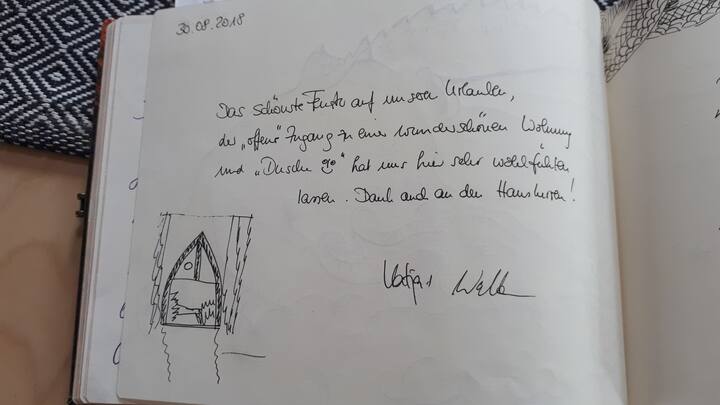 30.08.2018
Das schönste Fenster auf unseren Urlauben,
der "offene" Zugang zu einer wunderschönen Wohnung
und "Dusche go" hat uns hier sehr wohl fühlen
lassen. Dank auch an den Hausherren!